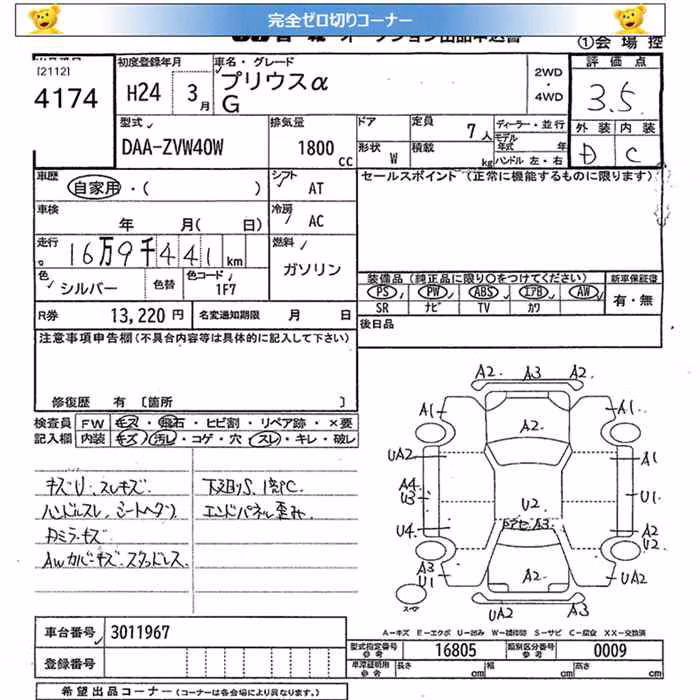 完全ゼロ切りコーナー
①会場控
[2112]
4174
初度登録年月
H24 3月
車名・グレード
プリウスα
G
2WD
・
4WD
評価点
3.5
外装 内装
D C
型式
DAA-ZVW40W
排気量
1800 cc
ドア
形状 W
定員 7人
積載 kg
ディーラー・並行
モデル年式 年
ハンドル 左・右
車歴
自家用・( )
シフト
AT
セールスポイント (正常に機能するものに限ります)
車検
年 月( 日)
冷房
AC
走行
16万9千441km
燃料
ガソリン
色
シルバー
色替
色コード
1F7
装備品 (純正品に限り○をつけてください)
PS PW ABS エアB AW
SR ナビ TV カワ
新車保証書
有・無
R券 13,220円
名変通知期限 月 日
後日品
注意事項申告欄(不具合内容等は具体的に記入して下さい)
修復歴 有 [箇所 ]
検査員記入欄
FW キズ・飛石・ヒビ割・リペア跡・×要
内装 キズ・汚レ・コゲ・穴・スレ・キレ・破レ
キズU、スレキズ
ハンドルスレ、シートヘタリ
Rミラーキズ
AWカバーキズ、スタッドレス
下廻りS、1部C
エンドパネル歪み
A2 A3 A2
A1 A2 A1
UA2 A1
A4
U3 U2 U1
U4 ドアセD A3 A2
U2
A3
U1 A2 UA2
UA2 A3
スペア
A-キズ E-エクボ U-凹み W-補修跡 S-サビ C-腐食 XX-交換済
車台番号 3011967
登録番号
型式指定番号
参考
16805
類別区分番号
参考
0009
車庫証明用
参考
長さ cm 幅 cm 高さ cm
希望出品コーナー (コーナーは各会場により異なります。)